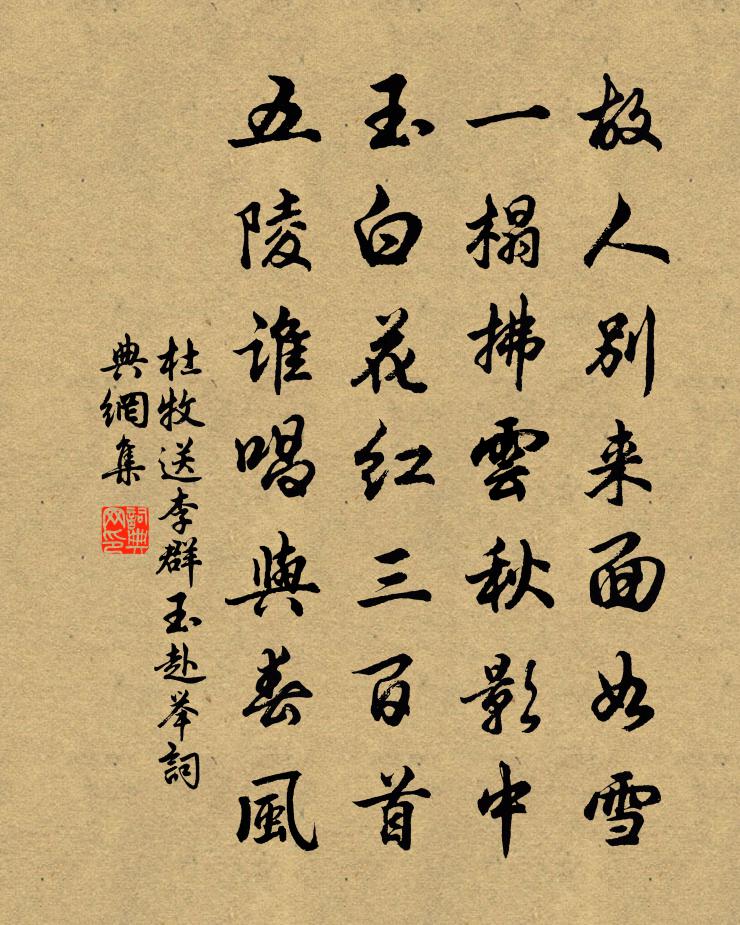 故人别来面如雪
一榻拂雲秋影中
玉白花红三百首
五陵谁唱與春風
杜牧送李群玉赴举詞
典網集
詞典网印